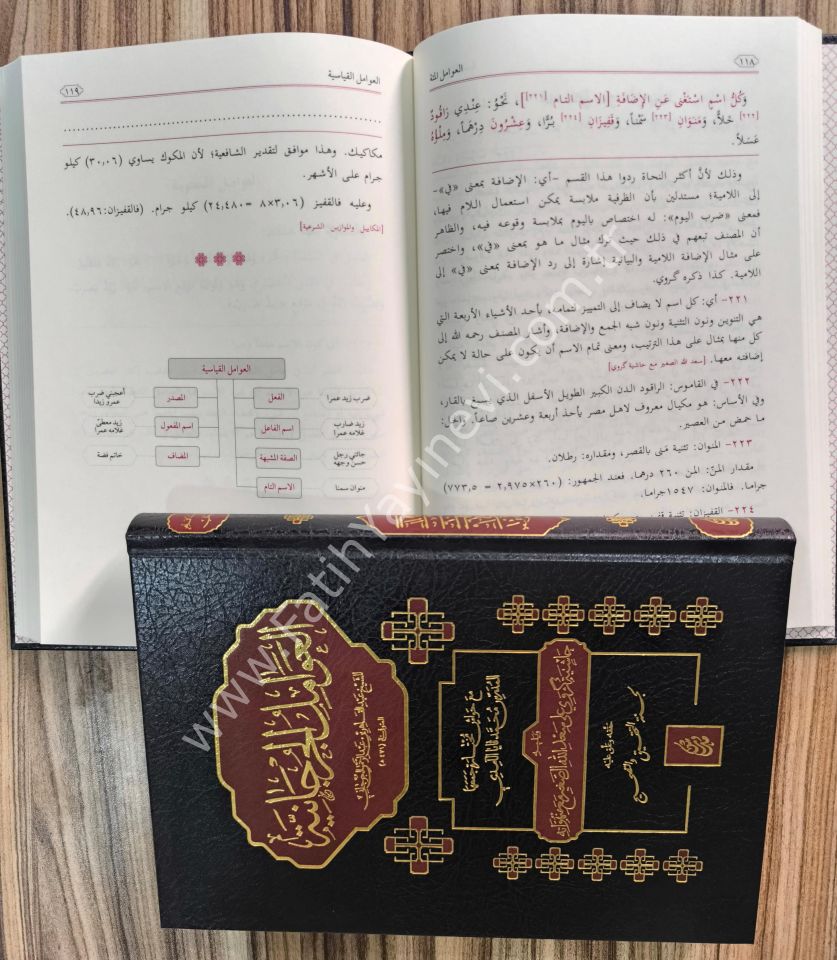 ١١٨
العوامل المئة
وَكُلُّ اسْمٍ اسْتَغْنَى عَنِ الإِضَافَةِ [الاسم التام [٢٢١]]، نَحْوُ: عِنْدِي رَاقُودٌ
[٢٢٢] خَلًّا، وَمَنَوَانِ [٢٢٣] سَمْناً، وَقَفِيزَانِ [٢٢٤] بُرًّا، وَعِشْرُونَ دِرْهَماً، وَمِلْؤُهُ
عَسَلاً.
وذلك لأن أكثر النحاة ردوا هذا القسم -أي: الإضافة بمعنى «في»-
إلى اللامية؛ مستدلين بأن الظرفية ملابسة يمكن استعمال اللام فيها،
فمعنى «ضرب اليوم»: له اختصاص باليوم بملابسة وقوعه فيه، والظاهر
أن المصنف تبعهم في ذلك حيث ترك مثال ما هو بمعنى «في»، واختصر
على مثال الإضافة اللامية والبيانية إشارة إلى رد الإضافة بمعنى «في» إلى
اللامية. كذا ذكره گروي.
٢٢١- أي: كل اسم لا يضاف إلى التمييز لتمامه، بأحد الأشياء الأربعة التي
هي التنوين ونون التثنية ونون شبه الجمع والإضافة، وأشار المصنف رحمه الله إلى
كل منها بمثال على هذا الترتيب، ومعنى تمام الاسم أن يكون على حالة لا يمكن
إضافته معها. [سعد الله الصغير مع حاشية گروي]
٢٢٢- في القاموس: الراقود الدن الكبير الطويل الأسفل الذي يسيع بالقار،
وفي الأساس: هو مكيال معروف لاهل مصر يأخذ أربعة وعشرين صاعاً. والخل:
ما حمض من العصير.
٢٢٣- المنوان: تثنية مَنى بالقصر، ومقداره: رطلان.
مقدار المنّ: المن ٢٦٠ درهما. فعند الجمهور: (٢٦٠×٢,٩٧٥ = ٧٧٣,٥)
جراما. فالمنوان: ١٥٤٧جراما.
٢٢٤- القفيزان: تثنية
العوامل القياسية
١١٩
مكاكيك. وهذا موافق لتقدير الشافعية؛ لأن المكوك يساوي (٣٠,٠٦) كيلو
جرام على الأشهر.
وعليه فالقفيز (٣,٠٦×٨ =٢٤,٤٨٠) كيلو جرام. (فالقفيزان:٤٨,٩٦).
[المكاييل والموازين الشرعية]
العوامل القياسية
ضرب زيد عمرا
الفعل
المصدر
أعجبني ضرب
عمرو زيدا
زيد ضارب
غلامه عمرا
اسم الفاعل
اسم المفعول
زيد معطىً
غلامه عمرا
جائني رجل
حسن وجهه
الصفة المشبهة
المضاف
خاتم فضة
منوان سمنا
الاسم التام
العوامل الجرجانية
للشيخ عبد القاهر بن عبد الرحمن الجرجاني
المتوفى سنة (٤٧١ هـ)
حاشية گروي على سعد الله الصغير
لجنة التحقيق والتصحيح
www.FatihYayinevi.com.tr